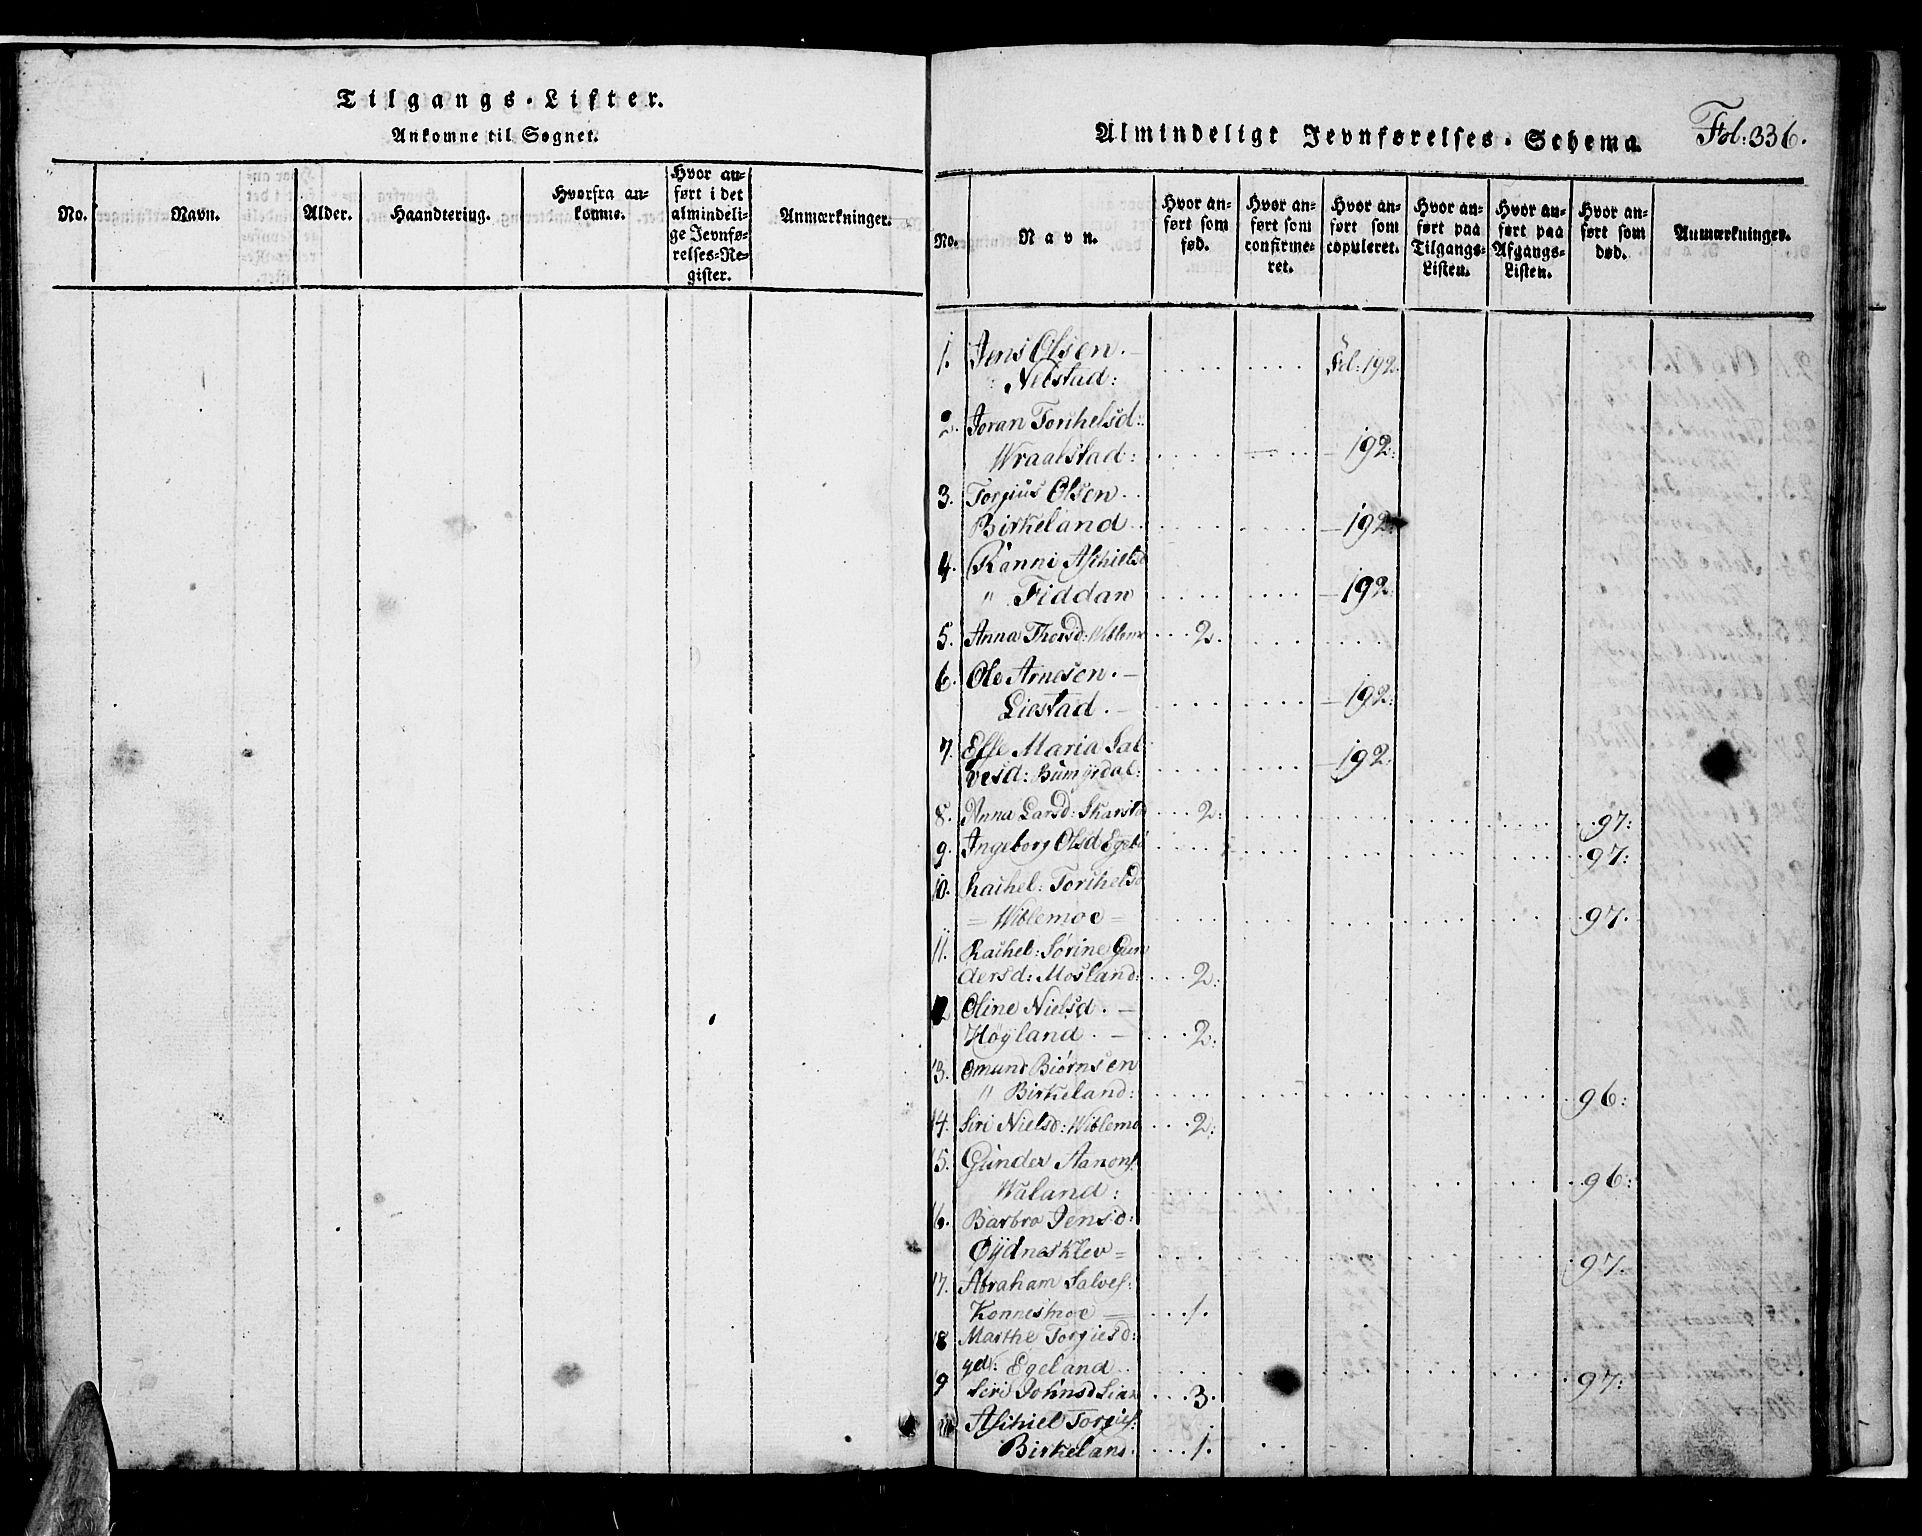 Tilgangs-Lister.
Ankomne til Sognet.
No.
Navn.
Alder.
Haandtering.
Hvorfra an-
komne.
Hvor an-
ført i det
almindeli-
ge Jevnfø-
relses-Re-
gister.
Anmærkninger.
Almindeligt Jevnførelses-Schema
Fol: 336.
No.
Navn.
Hvor an-
ført som
fød.
Hvor an-
ført som
confirme-
ret.
Hvor an-
ført som
copuleret.
Hvor an-
ført paa
Tilgangs-
Listen.
Hvor an-
ført paa
Afgangs-
Listen.
Hvor an-
ført som
død.
Anmærkninger.
1. Jens Olsen.
Nebstad: Fol: 192.
2. Joran Torkelsd:
Wraalstad: 192:
3. Torjius Olsen
Birkeland 192:
4. Ranni Aschielsd
" Fiddan 192:
5. Anna Thorsd: Wiblemo 2.
6. Ole Arnesen.
Liestad. 192:
7. Elle Maria Sal
vesd: Bumyrdal: 192:
8. Anna Larsd: Skarsta 2: 97:
9. Ingeborg Olsd Egel 97:
10. Rachel: Torkelsd
= Wiblemoe = 97.
11. Rachel: Sørine Gun
dersd: Mosland: 2:
12 Oline Nielsd.
Høyland. 2:
13. Omund Biørnsen
" Birkeland: 96:
14. Siri Nielsd: Wiblemo 2:
15. Gunder Aanons.
Waland: 96:
16. Barbro Jensd:
Øydnesklev = 97.
17. Abraham Salves:
Konnesmoe = 1.
18 Marthe Torjiesd:
yd: Egeland 97:
9 Siri Johnsd 3.
Aschiel Torjies:
Birkelans. 1.